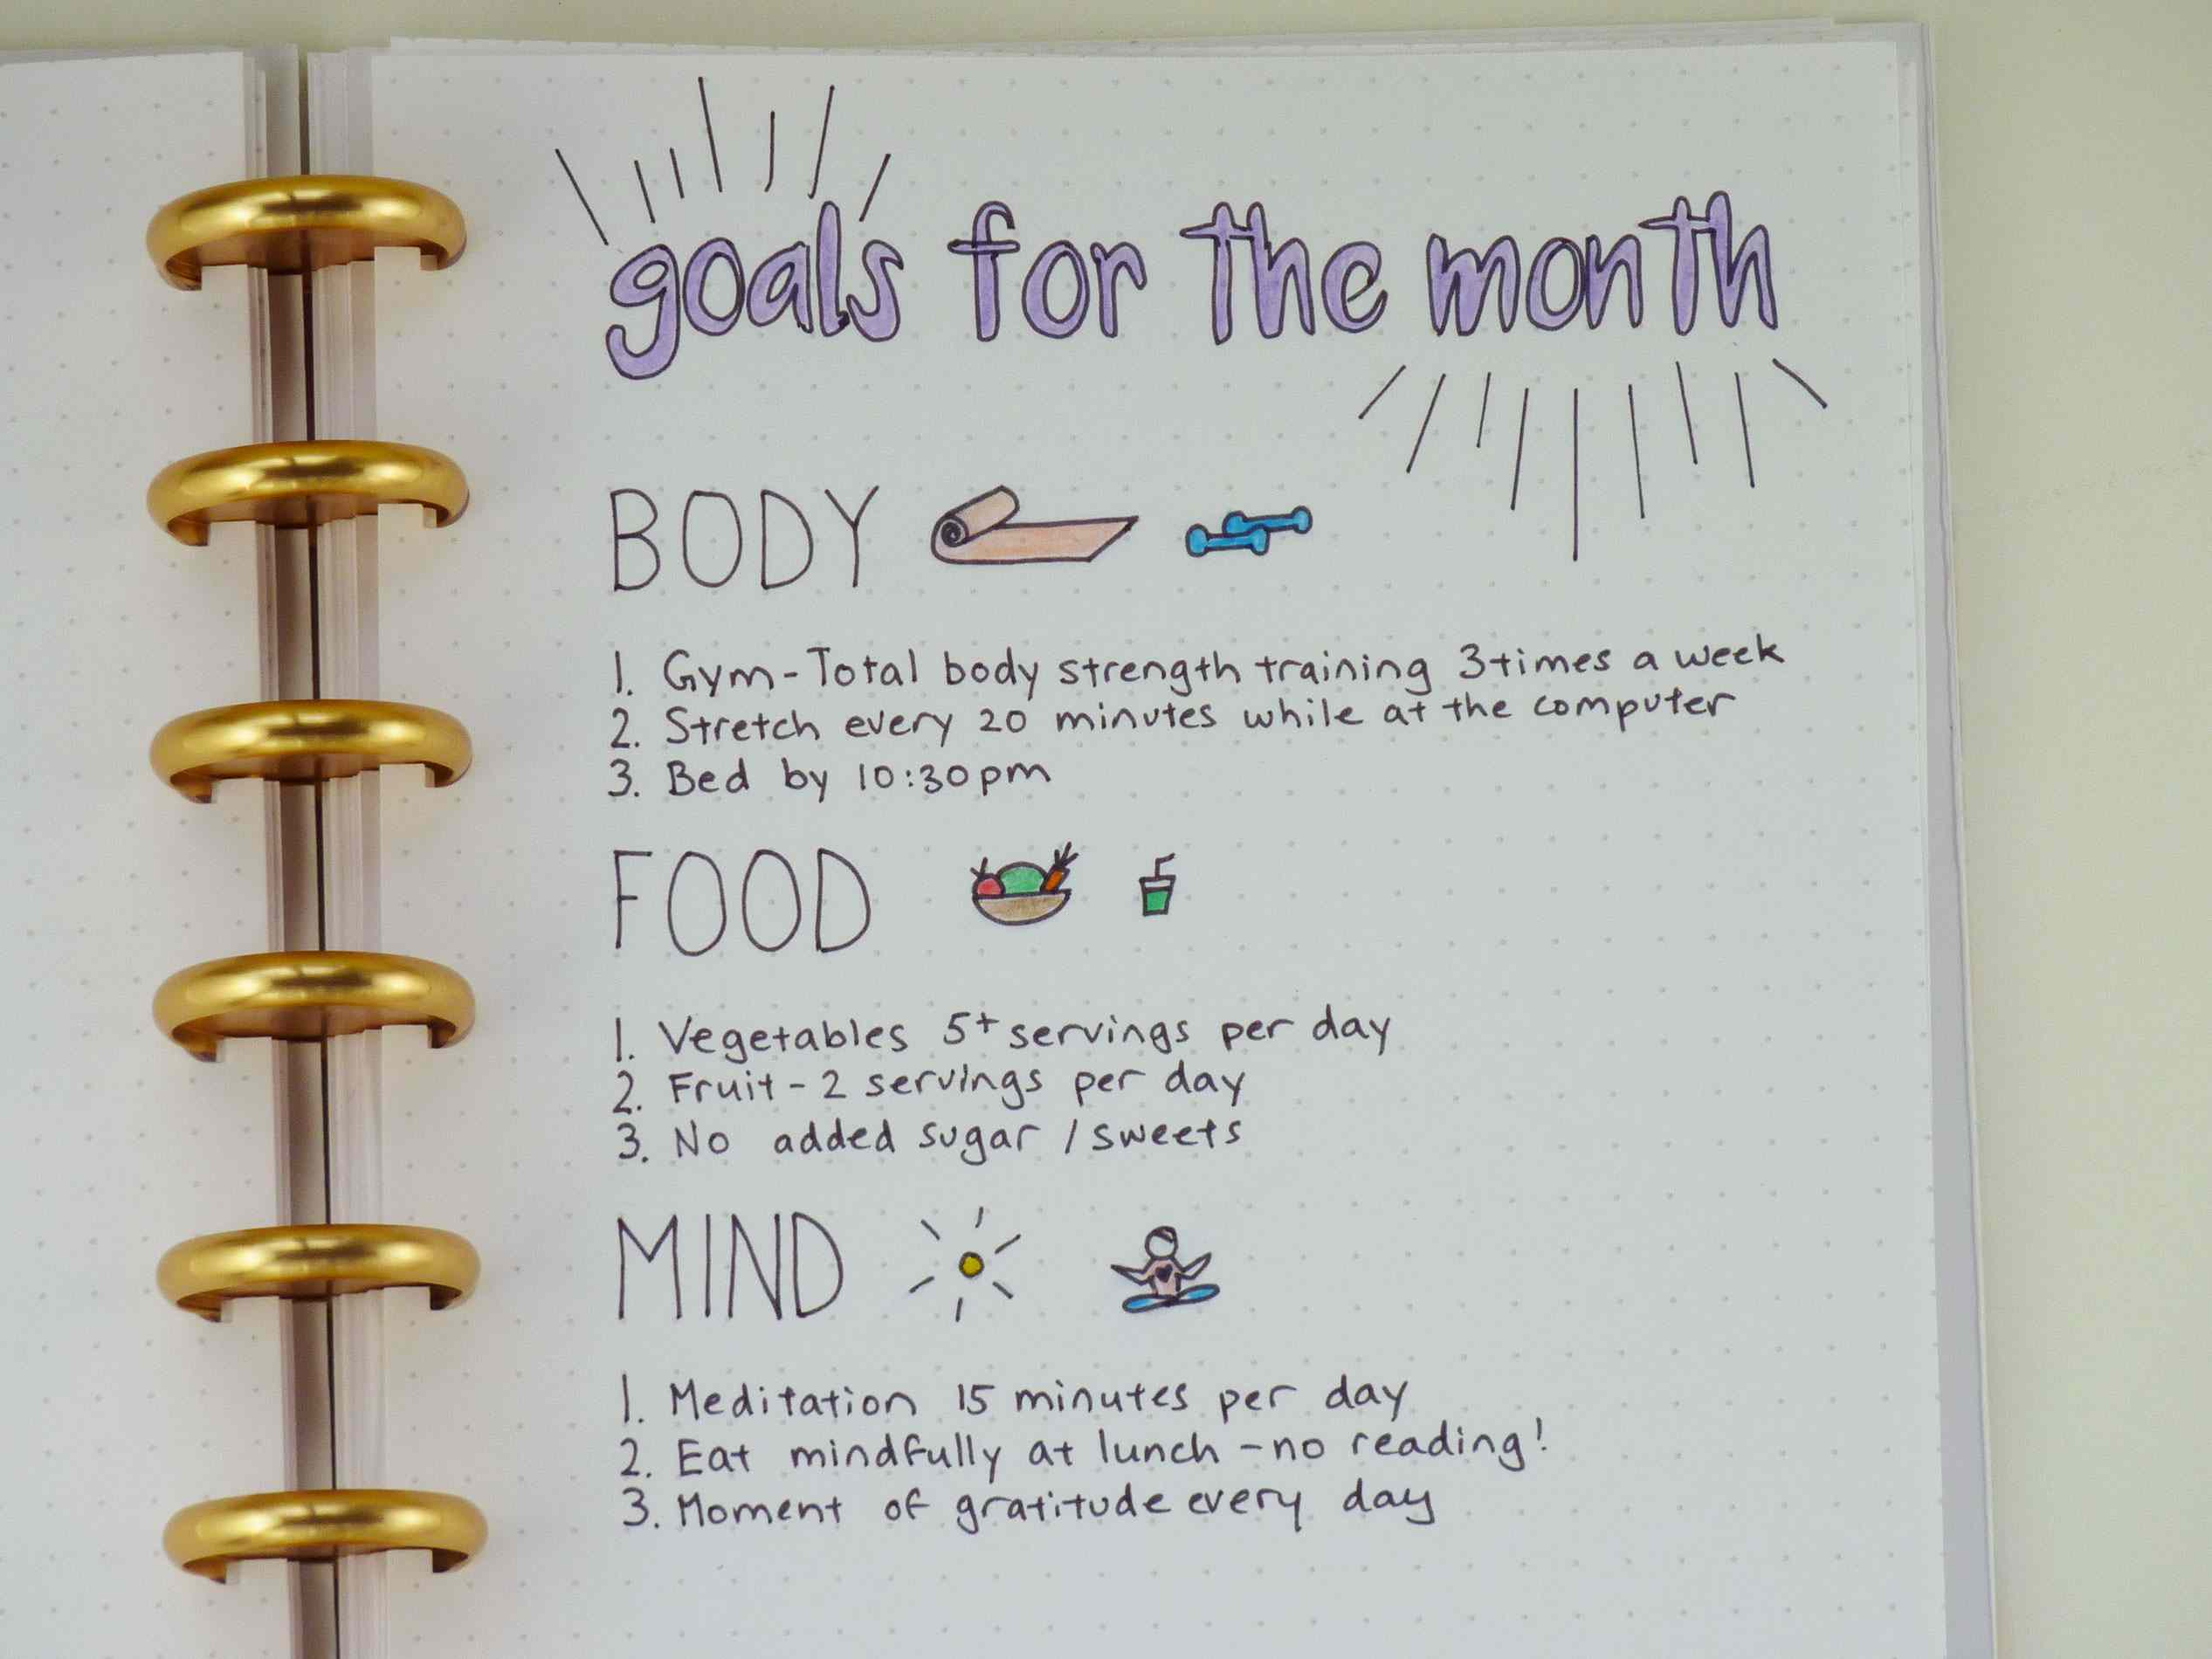 goals for the month
BODY
1. Gym-Total body strength training 3times a week
2. Stretch every 20 minutes while at the computer
3. Bed by 10:30pm
FOOD
1. Vegetables 5+ servings per day
2. Fruit - 2 servings per day
3. No added sugar / sweets
MIND
1. Meditation 15 minutes per day
2. Eat mindfully at lunch - no reading!
3. Moment of gratitude every day